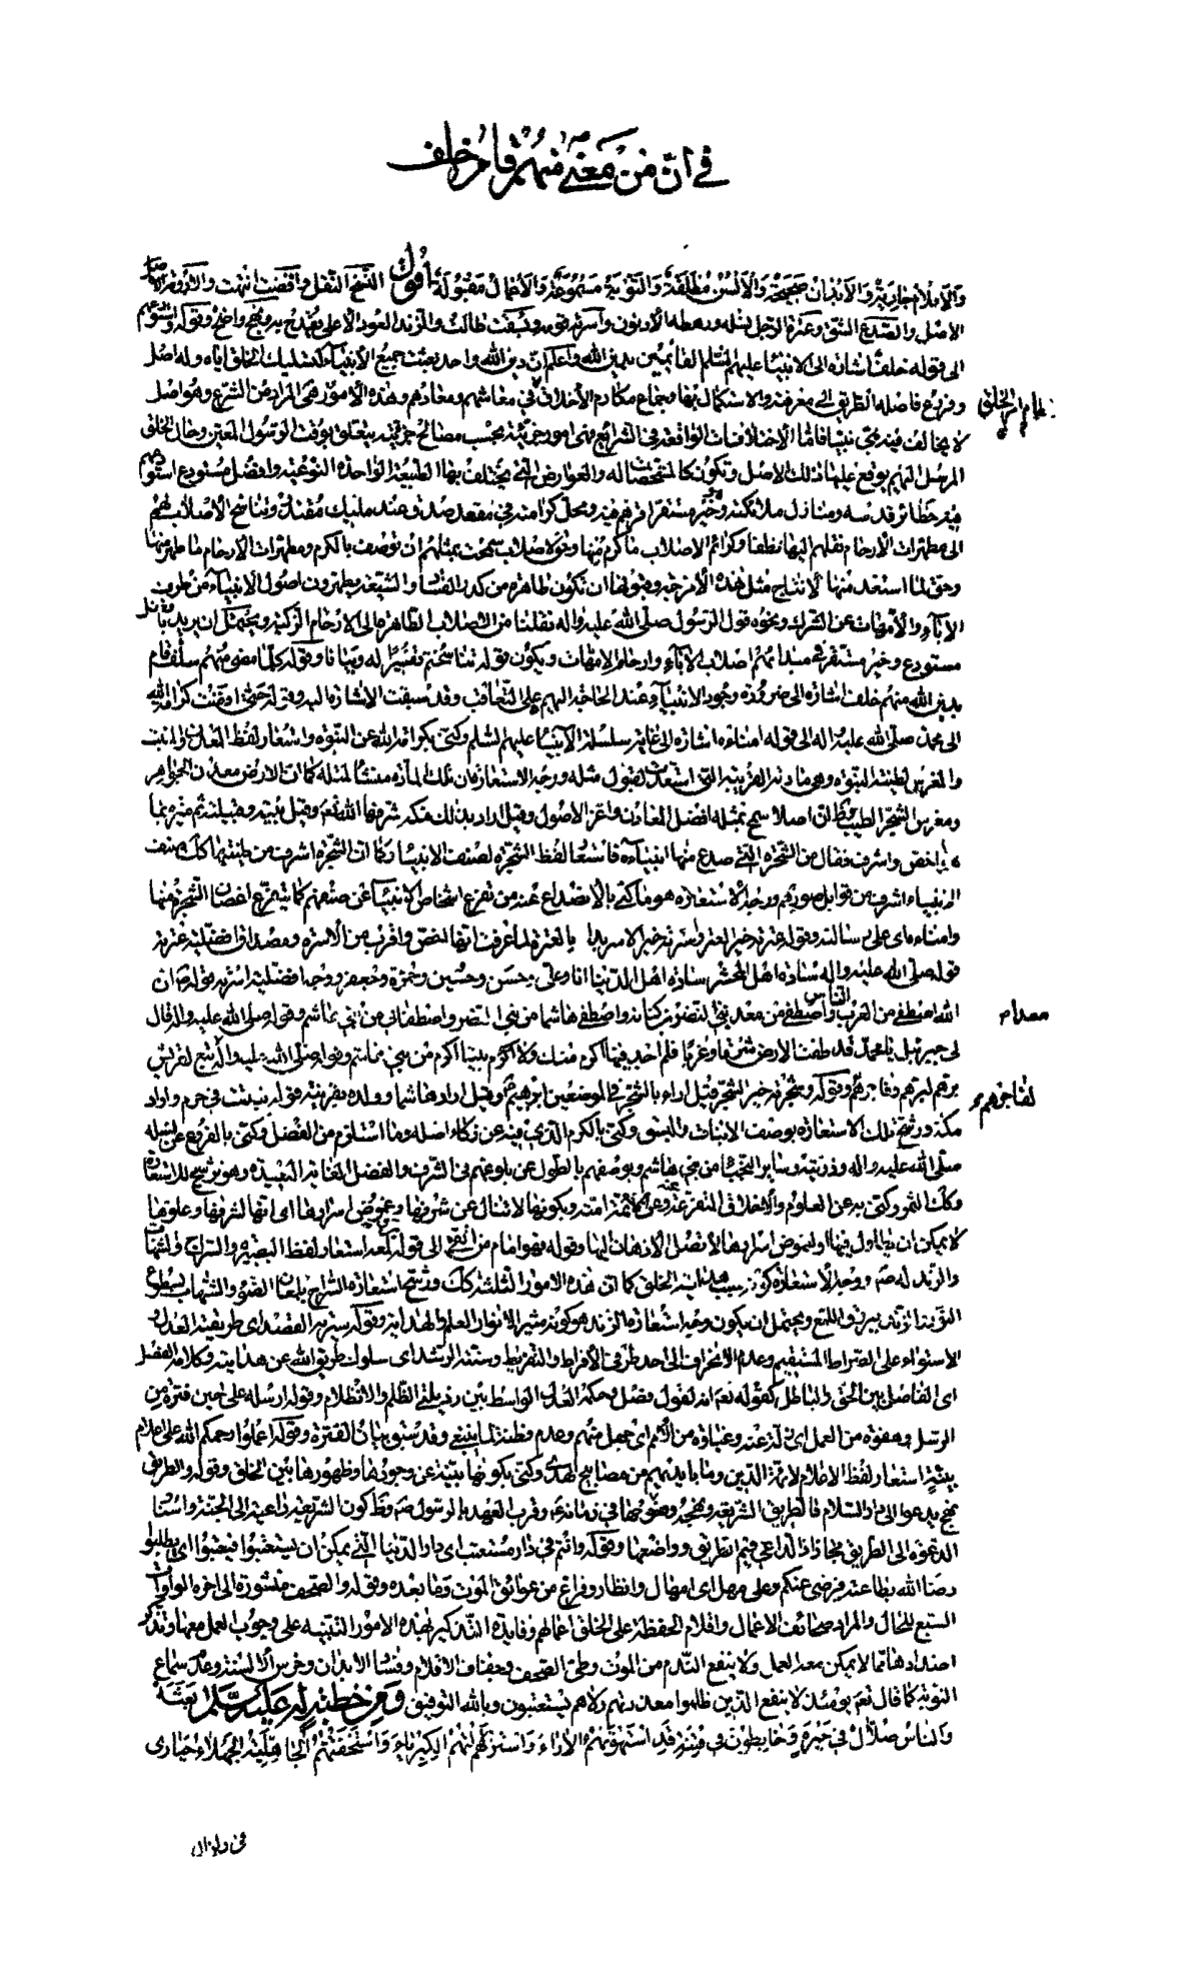 في ان من مضى منهم قام خلف
والاقلام جارية والابدان صحيحة والالسن مطلقة والتوبة مسموعة والاعمال مقبولة أقول النسخ النقل وافضت انتهت والارومة
الاصل والصدع الشق وعترة الرجل نسله ورهطه الادنون واسرته قومه وبسقت طالت والزند العود الاعلى يقدح به ونهج واضح وقوله
الى قوله خلف اشارة الى الانبياء عليهم السلم القائمين بدين الله واعلم ان دين الله واحد بعث جميع الأنبياء لتسليك الخلق اياه وله اصل
وفروع فاصله الطريق الى معرفته والاستكمال بها وجماع مكارم الأخلاق في معاشهم ومعادهم وهذه الامور هي المراد من الشرع وهو اصل
لا يخالف فيه نبي نبيا فاما الاختلافات الواقعة في الشرائع فهى امور جزئية بحسب مصالح جزئية يتعلق بوقت الرسول المعين وحال الخلق
المرسل اليهم يوقع عليها ذلك الاصل وتكون كالمشخصات له والعوارض التي يختلف بها الطبيعة الواحدة النوعية وافضل مستودع استودعهم
فيه حظائر قدسه ومنازل ملائكته وخير مستقر اقرهم فيه ومحل كرامته في مقعد صدق عند مليك مقتدر وتناسخ الأصلاب لهم
الى مطهرات الارحام نقلهم اليها نطفا وكرائم الاصلاب ما كرم منها وحق لاصلاب سمحت بمثلهم ان توصف بالكرم ومطهرات الارحام ما طهر منها
وحق لما استعد منها لانتاج مثل هذه الأمزجة وقبولها ان تكون طاهرة من كدر الفساد والشيعة يطهرون اصول الأنبياء من طرف
الآباء والأمهات عن الشرك ونحوه قول الرسول صلى الله عليه واله نقلنا من الاصلاب الطاهرة الى الارحام الزكية ويحتمل ان يريد بافضل
مستودع وخير مستقر في مبدائهم اصلاب الآباء وارحام الامهات ويكون قوله تناسختهم تفسيرا له وبيانا وقوله كلما مضى منهم سلف قام
بدين الله منهم خلف اشارة الى ضرورة وجود الانبياء عند الحاجة اليهم على التعاقب وقد سبقت الاشارة اليه وقوله حتى افضت كرامة الله
الى محمد صلى الله عليه واله الى قوله امناءه اشارة الى غاية سلسلة الانبياء عليهم السلم وكنى بكرامة الله عن النبوة واستعار لفظ المعدن والمنبت
والمغرس لطينة النبوة وهي مادته القريبة التي استعدت لقبول مثله ووجه الاستعارة ان تلك المادة منشأ لمثله كما ان الارض معدن الجواهر
ومغرس الشجر الطيب وظ ان اصلا سمح بمثله افضل المعادن واعز الاصول وقيل اراد بذلك مكة شرفها الله تعم وقيل بيته وقبيلته ثم ميزه بما
هو اخص واشرف فقال من الشجرة التي صدع منها انبياءه فاستعار لفظ الشجرة لصنف الانبياء وكما ان الشجرة اشرف من طينتها كك صنف
الانبياء اشرف من قوابل صورهم ووجه الاستعارة هو ما كنى بالانصداع عنه من تفرع اشخاص الانبياء عن صنفهم كما يتفرع اغصان الشجرة منها
وامناءه اى على رسالته وقوله عترته خير العتر واسرته خير الاسر بدأ بالعترة لما عرفت انها اخص واقرب من الأسرة ومصداق افضلية عترته
قوله صلى الله عليه واله سادة اهل المحشر سادة اهل الدنيا انا وعلى وحسن وحسين وحمزة وجعفر ووجه افضلية اسرته قوله ص ان
الله اصطفى من العرب واصطفى من معد بني النضر بن كنانة واصطفى هاشما من بني النضر واصطفاني من بني هاشم وقوله صلى الله عليه واله قال
لى جبرئيل يا محمد قد طفت الارض شرقا وغربا فلم اجد فيها اكرم منك ولا اكرم بيتا اكرم من بني هاشم وقوله صلى الله عليه واله الناس تبع لقريش
برهم لبرهم وفاجرهم وقوله وشجرته خير الشجر قيل اراد بالشجر في الموضعين ابرهيم وقيل اراد هاشما وولده بقرينة قوله نبتت في حرم واراد
مكة ورشح تلك الاستعارة بوصف الانبات والبسوق وكنى بالكرم الذي فيه عن زكاء اصله وما استلزم من الفضل وكنى بالفروع عن نسله
صلى الله عليه واله وذريته وساير النجباء من بني هاشم وبوصفهم بالطول عن بلوغهم في الشرف والفضل الغاية البعيدة وهو ترشيح للاستعارة
وكك الثمر وكنى به عن العلوم والاخلاق المتفرعة عنه وعن ائمة امته وبكونها لا تنال عن شرفها وغموض اسرارها اى انها لشرفها وعلوها
لا يمكن ان يطاول فيها او لغموض اسرارها لا تصل الاذهان اليها وقوله فهو امام من اتقى الى قوله لمعه استعار لفظ البصيرة والسراج والشهاب
والزند له ص ووجه الاستعارة كونه سبب هداية الخلق كما ان هذه الامور الثلثة كك ورشح استعارة السراج بلمعان الضوء والشهاب بسطوع
النور والزند ببروق اللمع ويحتمل ان يكون وجه استعارة الزند هو كونه مثير الانوار العلم والهداية وقوله سيرته القصد اى طريقته العدل و
الاستواء على الصراط المستقيم وعدم الانحراف الى احد طرفي الافراط والتفريط وسنته الرشد اى سلوك طريق الله عن هدايته وكلامه الفصل
اى الفاصل بين الحق والباطل كقوله تعم انه لقول فصل وحكمه العدل الواسط بين رذيلتي الظلم والانظلام وقوله ارسله على حين فترة من
الرسل وهفوة من العمل اى زلة عنه وغباوة من الأمم اى جهل منهم وعدم فطنة لما ينبغى وقد سبق بيان الفترة وقوله اعملوا رحمكم الله على اعلام
بينة استعار لفظ الاعلام لائمة الدين وما بايديهم من مصابيح الهدى وكنى بكونها بينة عن وجودها وظهورها بين الخلق وقوله والطريق
نهج يدعو الى دار السلام فالطريق الشريعة ونهجه وضوحها في زمانه ع وقرب العهد بالرسول ص وظ كون الشريعة داعية الى الجنة واسناد
الدعوة الى الطريق مجاز اذ الداعي قيم الطريق وواضعها وقوله وانتم في دار مستعتب اى دار الدنيا التي يمكن ان يستعتبوا فيعتبوا اى يطلبوا
رضا الله بطاعته فيرضى عنكم وعلى مهل اى امهال وانظار وفراغ من عوائق الموت وما بعده وقوله والصحف منشورة الى اخره الواوات
السبع للحال والمراد صحائف الاعمال واقلام الحفظة على الخلق اعمالهم وفايدة التذكير بهذه الامور التنبيه على وجوب العمل معها وتذكر
اضدادها مما لا يمكن معه العمل ولا ينفع الندم من الموت وطى الصحف وجفاف الاقلام وفساد الابدان وخرس الألسنة وعدم سماع
التوبة كما قال تعم يومئذ لا ينفع الذين ظلموا معذرتهم ولا هم يستعتبون وبالله التوفيق ومن خطبة له عليه السلم بعثه
والناس ضلال في حيرة وخابطون في فتنة قد استهوتهم الاراء واستزلتهم الكبرياء واستخفتهم الجاهلية الجهلاء حيارى
في زلزال